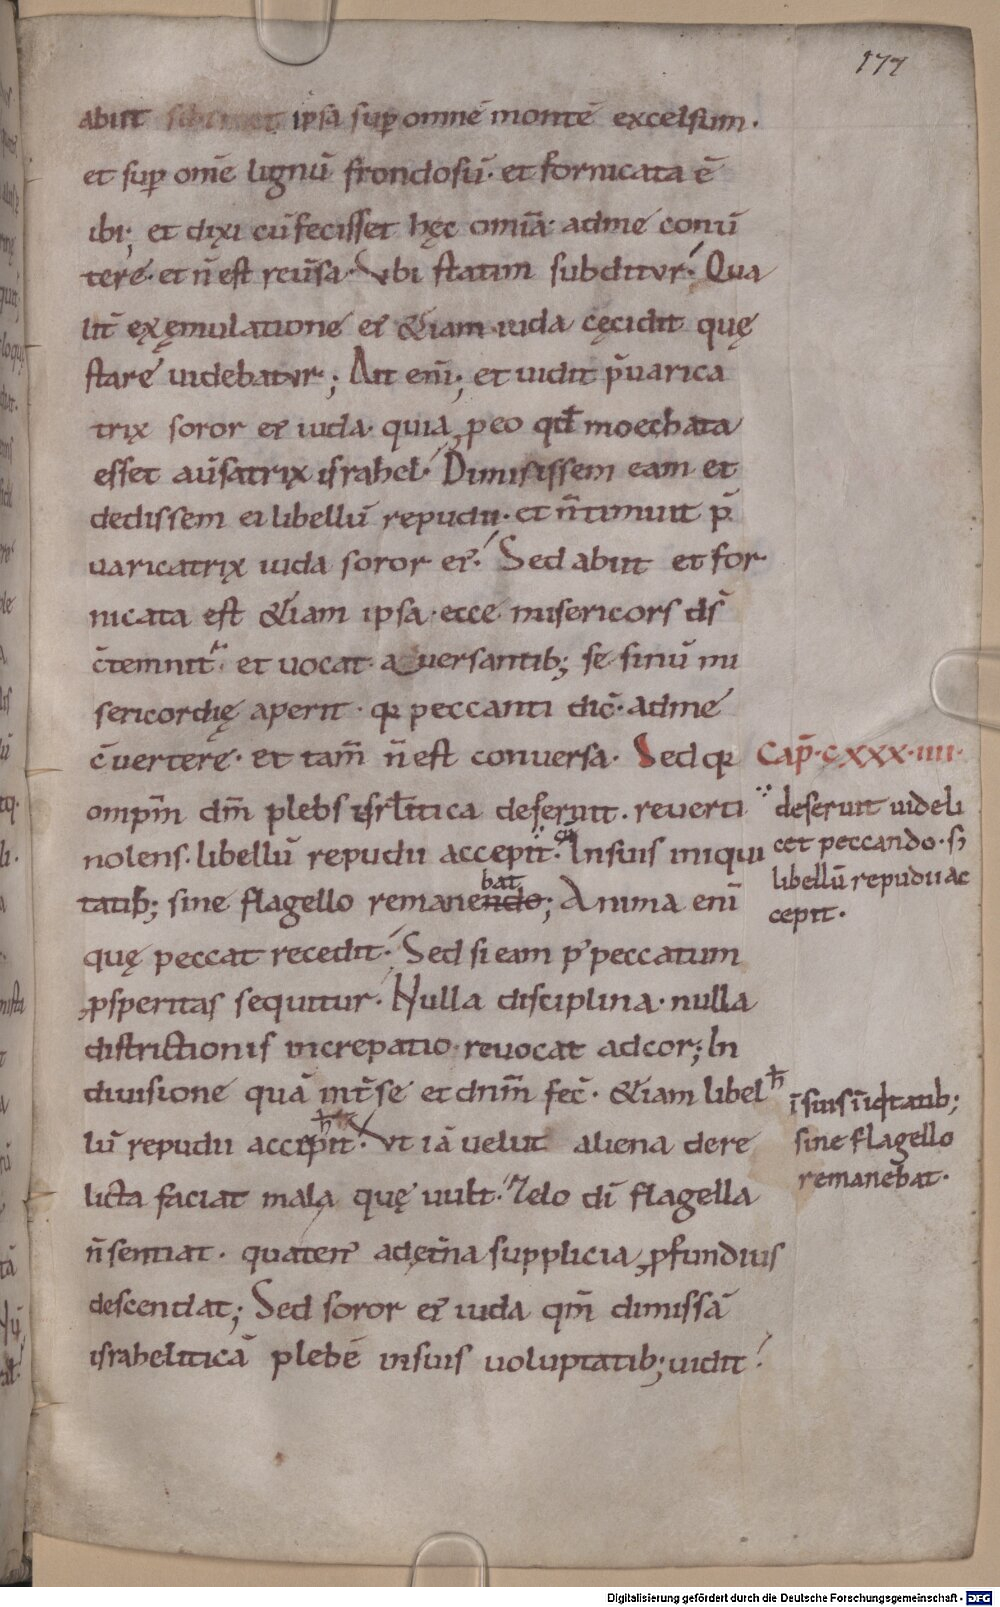 177
abiit sibimet ipsa sup omnē montē excelsum.
et sup om̄e lignū frondosū. et fornicata ē
ibi; et dixi cū fecisset hęc om̄ia. ad me conū
tere. et n̄ est reūsa. Vbi statim subditvr. Qua
lit̄ ex ęmulatione ei᷒ &iam iuda cęcidit quę
stare videbatvr; Ait eni̅; et vidit p̄uarica
trix soror ei᷒ iuda. quia ꝓ eo qđ moechata
esset aūsatrix israhel. Dimisissem eam et
dedissem ei libellū repudii. et n̄ timuit p̄
uaricatrix iuda soror ei᷒. Sed abiit et for
nicata est &iam ipsa. ecce misericors d̄s
c̄temnit᷑. et uocat. aversantib; se sinū mi
sericordię aperit. qꝛ peccanti dic̄. ad me
c̄uertere. et tam̄ n̄ est conversa. Sed qꝛ
Cap̄. cxxx. iiii.
omp̄m dm̄ plebs isrl̄itica deseruit. reverti
nolens. libellū repudii accepit. In suis iniqui
tatib; sine flagello remanendo; Anima enī
bat
quę peccat recedit. Sed si eam p᷒ peccatum
ꝓsperitas sequitur. Nulla disciplina. nulla
districtionis increpatio revocat ad cor; In
diuisione quā int̄ se et dnm̄ fec̄. &iam libel
lū repudii accepit. Vt iā uelut aliena dere
licta faciat mala quę uult. Zelo dī flagella
n̄ sentiat. quaten᷒ ad ęt̄na supplicia ꝓfundius
descendat; Sed soror ei᷒ iuda qm̄ dimissā
israheliticā plebē in suis uoluptatib; uidit.
deseruit uideli
cet peccando. s;
libellū repudii ac
cepit.
ħ
ī suis īiq̇tatib;
sine flagello
remaneb̄at.
Digitalisierung gefördert durch die Deutsche Forschungsgemeinschaft - DFG